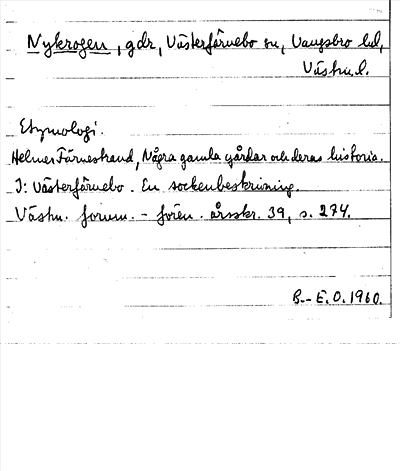 Nykrogen, gdr, Västerfärnebo sn, Vangsbro hd,
Västm. l.
Etymologi.
Helmer Färnestrand, Några gamla gårdar och deras historia.
I: Västerfärnebo. En sockenbeskrivning.
Västm. fornm. - fören. årsskr. 39, s. 274.
B.-E. O. 1960.